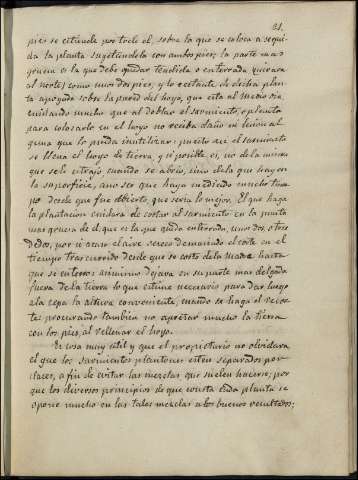 21.
pies se estiende por todo el, sobre la que se coloca a segui-
da la planta sugetandola con ambos pies; la parte mas
gruesa es la que debe quedar tendida o enterrada
al norte; como unos dos pies, y lo restante de dicha plan-
ta apoyado sobre la pared del hoyo, que esta al medio dia
cuidando mucho que al doblar el sarmiento, o planta
para colocarlo en el hoyo no reciba daño ni lesion al-
guna que lo pueda inutilizar: puesto asi el sarmiento
se llena el hoyo de tierra, y si posible es, no de la misma
que se le estrajo cuando se abrio, sino de la que hay en
la superficie, a no ser que haya mediado mucho tiem-
po desde que fue abierto, que seria lo mejor. El que haga
la plantacion cuidara de cortar al sarmiento en la punta
mas gruesa de el, que es la que queda enterrada, unos dos, o tres
dedos, por si acaso el aire secoso demasiado el corte en el
tiempo trascurrido desde que se corto de la madre hasta
que se enterro: asimismo dejara en su parte mas delgada
fuera de la tierra lo que estime necesario para dar luego
a la cepa la altura conveniente, cuando se haga el recor-
te; procurando tambien no apretar mucho la tierra
con los pies, al rellenar el hoyo.
Es cosa muy util y que el propietario no olvidara
el que los sarmientos plantones esten separados por
clases, a fin de evitar las mezclas que suelen hacerse; por
que los diversos principios de que consta cada planta se
opone mucho en las tales mezclas a los buenos resultados;